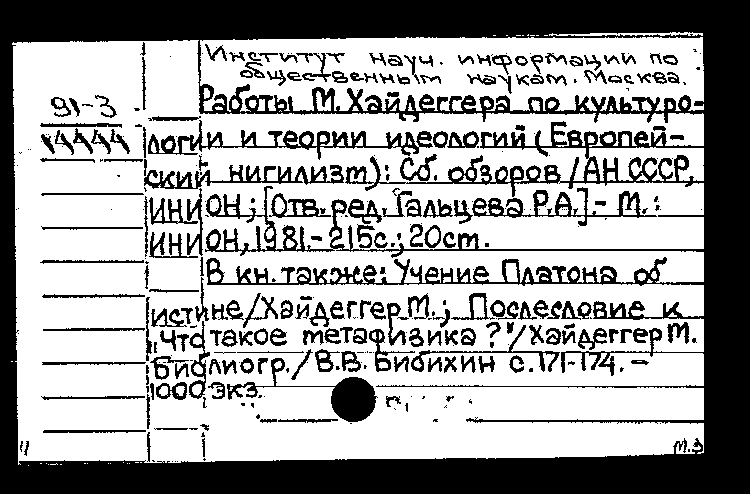 Институт науч. информации по
общественным наукам. Москва.
91-3
Работы М.Хайдеггера по культуро-
логии и теории идеологий (Европей-
ский нигилизм): Сб. обзоров/АН СССР,
ИНИОН; [Отв. ред. Гальцева Р.А.].- М.:
ИНИОН, 1981.- 215с.; 20cm.
В кн. также: Учение Платона об
истине/Хайдеггер М.; Послесловие к
„Что такое метафизика?"/Хайдеггер М.
Библиогр./В.В. Бибихин с.171-174. -
1000 экз.
11
М.З